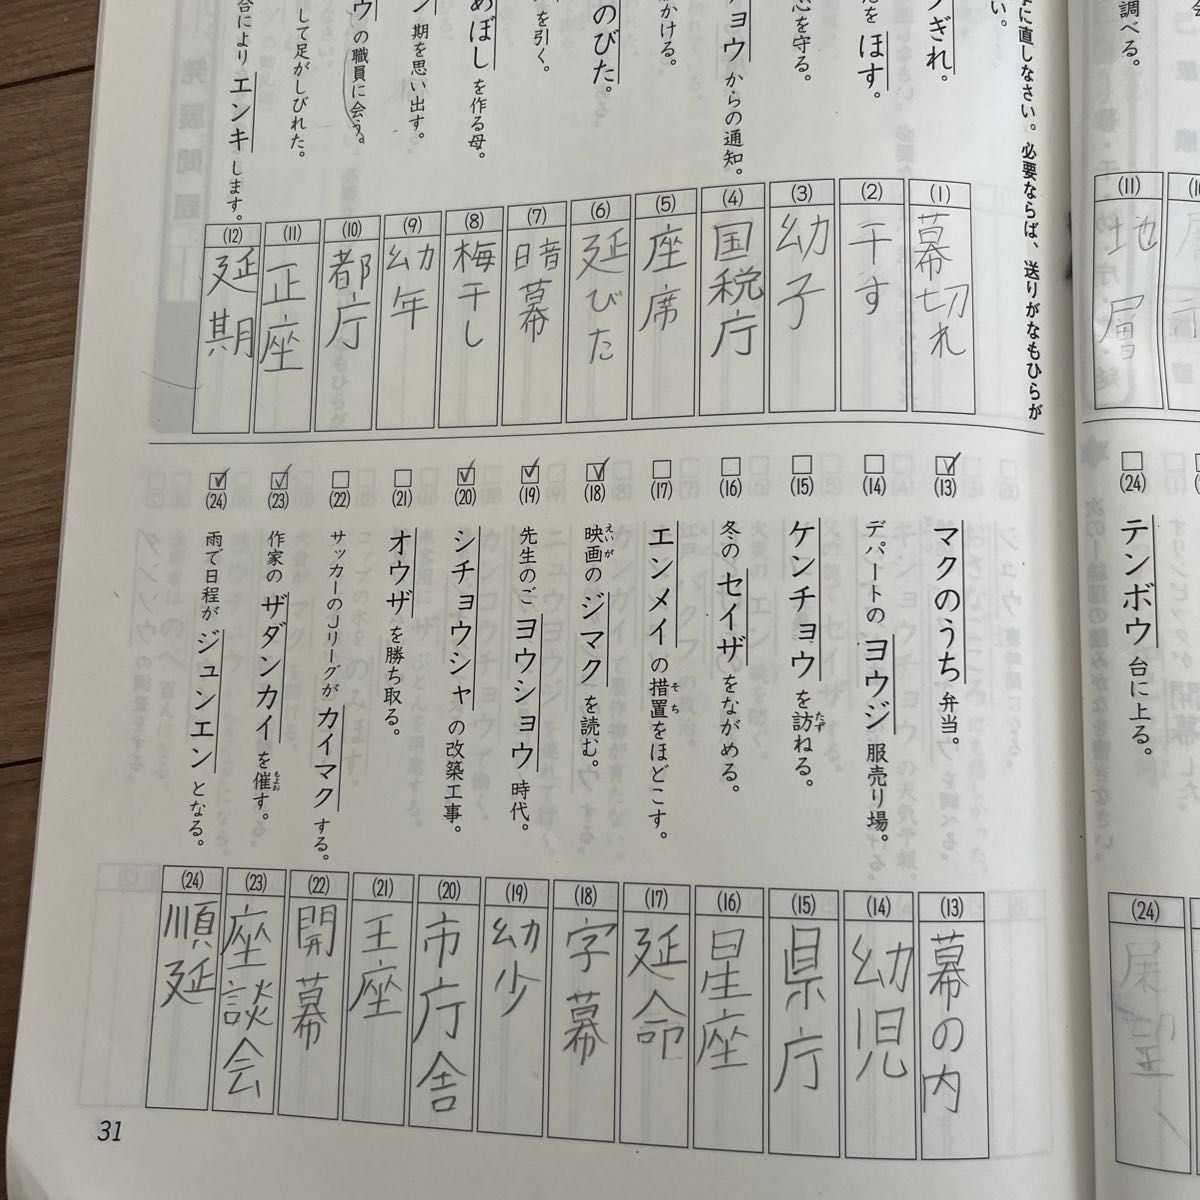 調べる。
(11)
地層
(24)
テンボウ台に上る。
(24)
展望
に直しなさい。必要ならば、送りがなもひらが
ぎれ。
ほす。
心を守る。
ョウからの通知。
かける。
のびた。
を引く。
めぼしを作る母。
期を思い出す。
ウの職員に会う。
して足がしびれた。
合によりエンキします。
(1)
幕切れ
(2)
干す
(3)
幼子
(4)
国税庁
(5)
座席
(6)
延びた
(7)
暗幕
(8)
梅干し
(9)
幼年
(10)
都庁
(11)
正座
(12)
延期
(13)
マクのうち弁当。
(14)
デパートのヨウジ服売り場。
(15)
ケンチョウを訪ねる。
たず
(16)
冬のセイザをながめる。
(17)
エンメイの措置をほどこす。
そち
(18)
映画のジマクを読む。
えいが
(19)
先生のごヨウショウ時代。
(20)
シチョウシャの改築工事。
(21)
オウザを勝ち取る。
(22)
サッカーのJリーグがカイマクする。
(23)
作家のザダンカイを催す。
もよお
(24)
雨で日程がジュンエンとなる。
(13)
幕の内
(14)
幼児
(15)
県庁
(16)
星座
(17)
延命
(18)
字幕
(19)
幼少
(20)
市庁舎
(21)
王座
(22)
開幕
(23)
座談会
(24)
順延
31